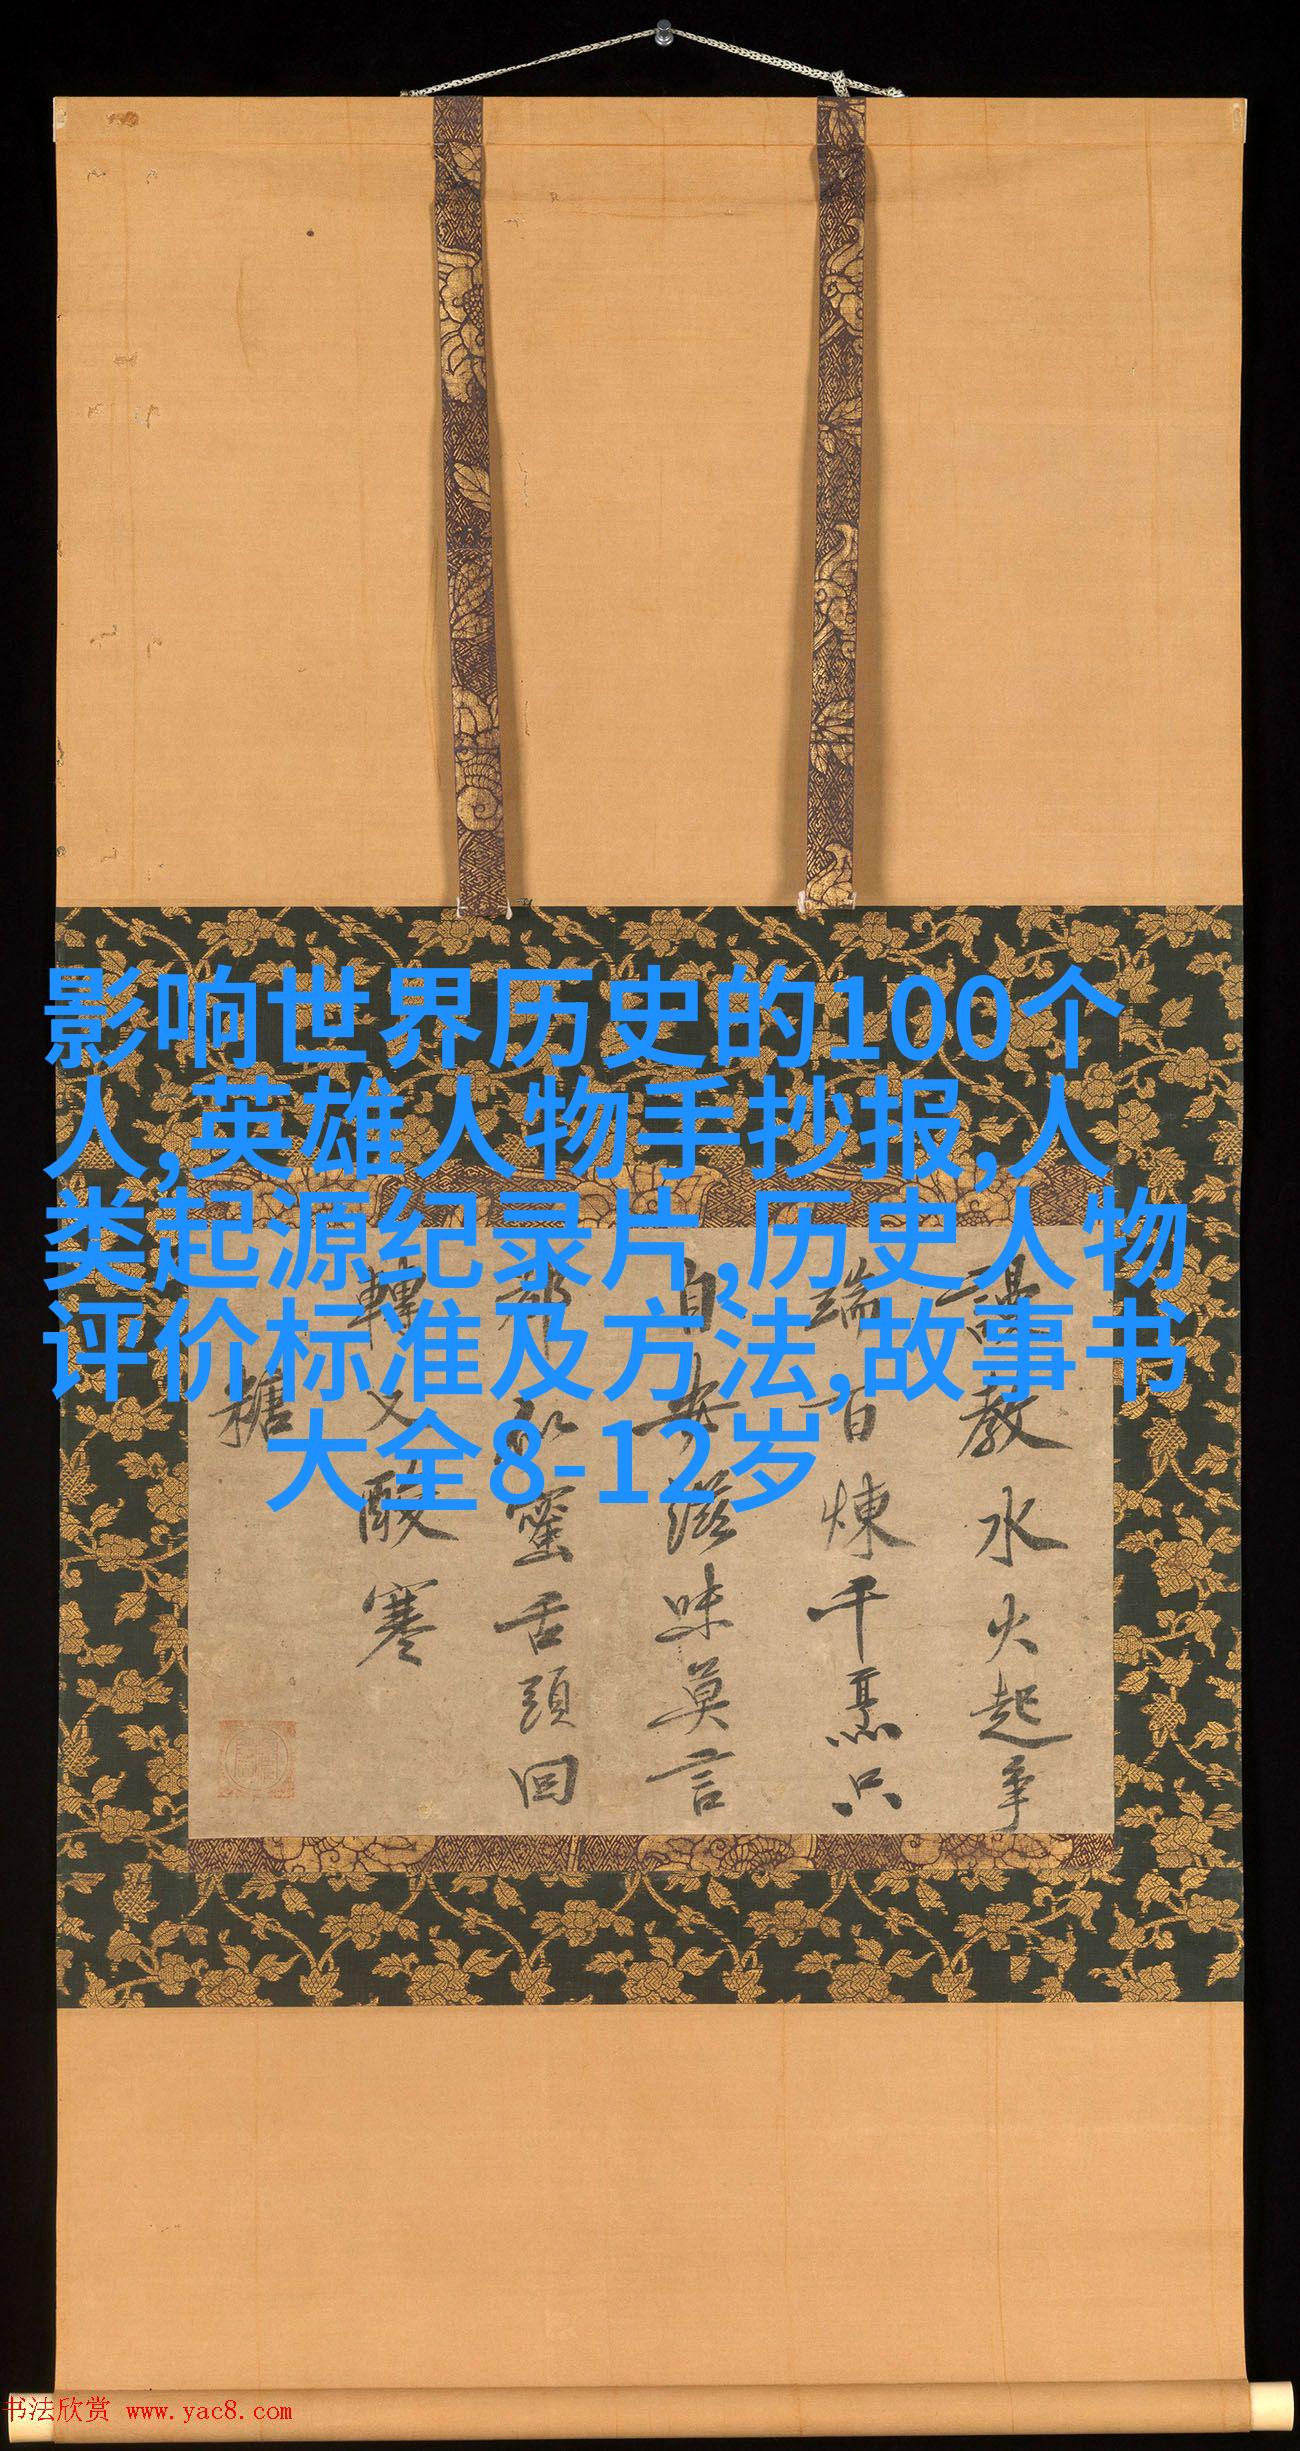 影响世界历史的100个
人,英雄人物手抄报,人
类起源纪录片,历史人物
评价标准及方法,故事书
大全8-12岁
教水火起争
端百煉千烹只
自滋味莫言
蜜舌頭回
轉又酸寒
糖
书法欣赏 www.yac8.com